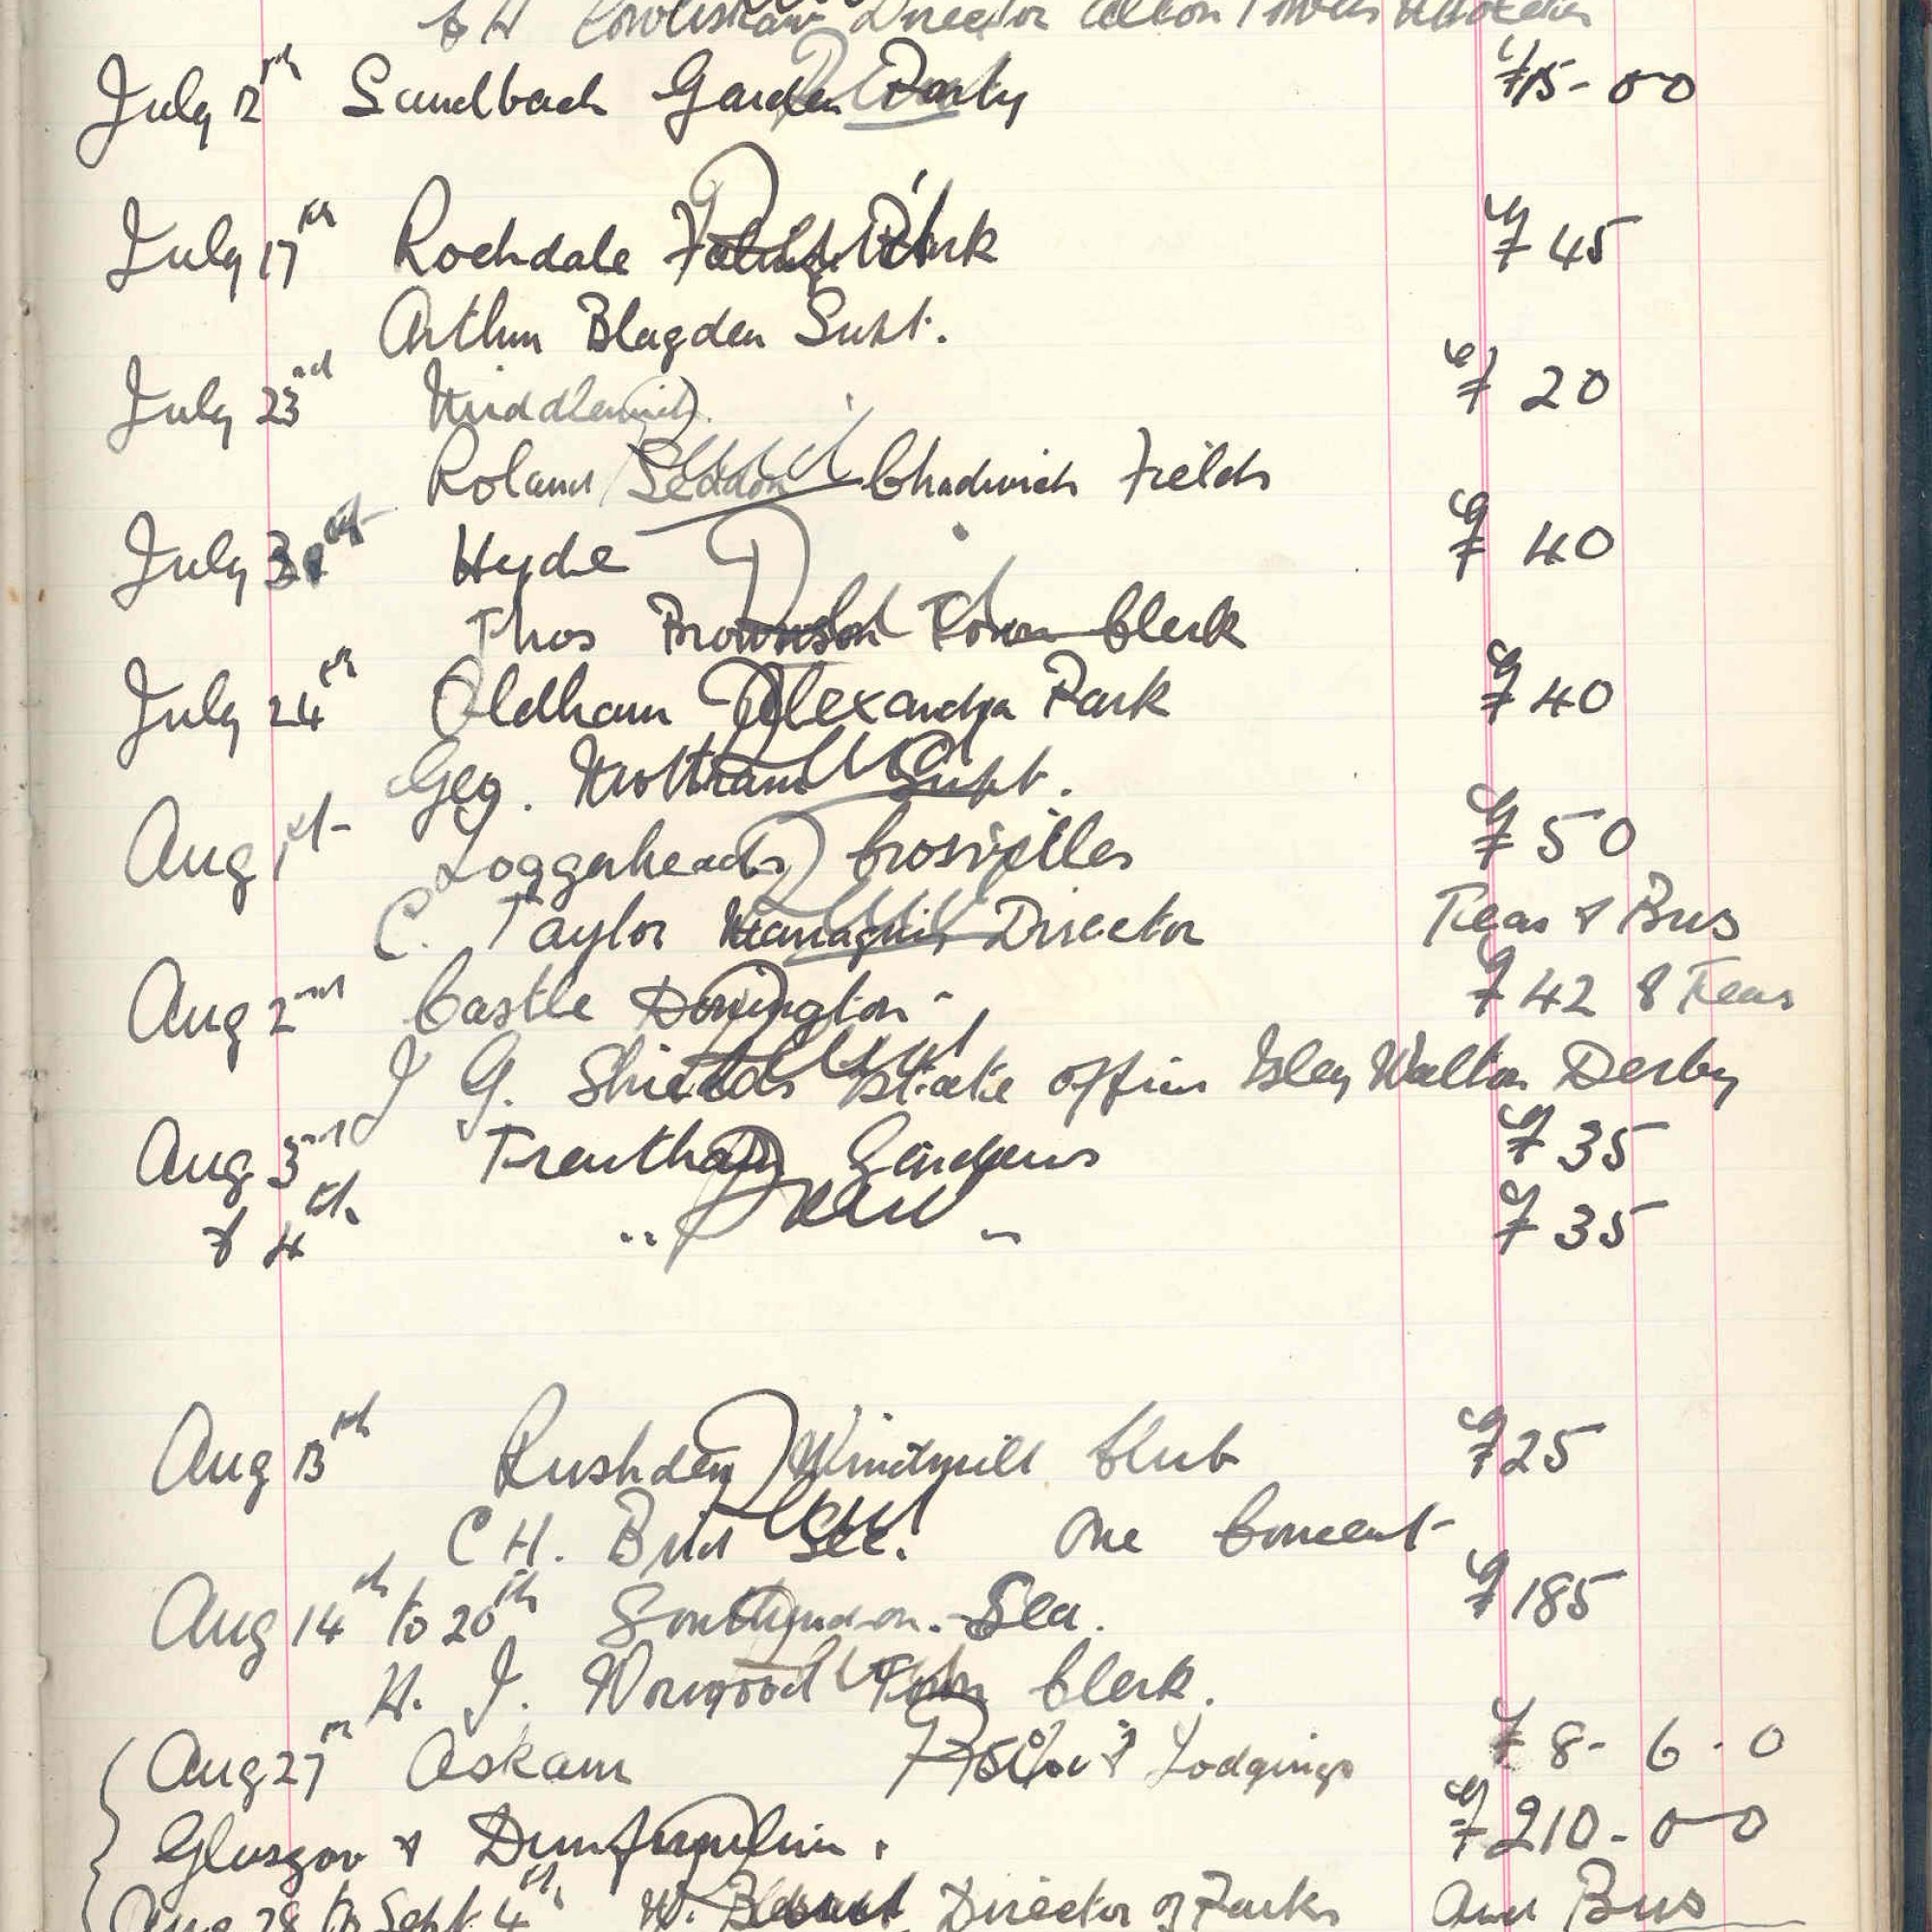 Director Alton Towers
July 12th Sandbach Garden Party £15-00
July 17th Rochdale Falinge Park £45
Arthur Blagden Supt.
July 23rd Middlewich £20
Roland Seddon Chadwick Fields
July 31st Hyde £40
Thos Brownson Town Clerk
July 24th Oldham Alexandra Park £40
Geo. Mottram Supt.
Aug 1st Loggerheads Crosvilles £50
C. Taylor Managing Director Teas & Bus
Aug 2nd Castle Donington £42 & Teas
J G. Shields Estate Office Isley Walton Derby
Aug 3rd Trentham Gardens £35
& 4th " " £35
Aug 13th Rushden Windmill Club £25
C H. Sec. One Concert
Aug 14th to 20th Southend-on-Sea. £185
H. J. Worwood Town Clerk.
Aug 27th Askam Lodgings £8-6-0
Glasgow & Dunfermline. £210-00
Aug 28 to Sept. 4th. W. Director of Parks and Bus